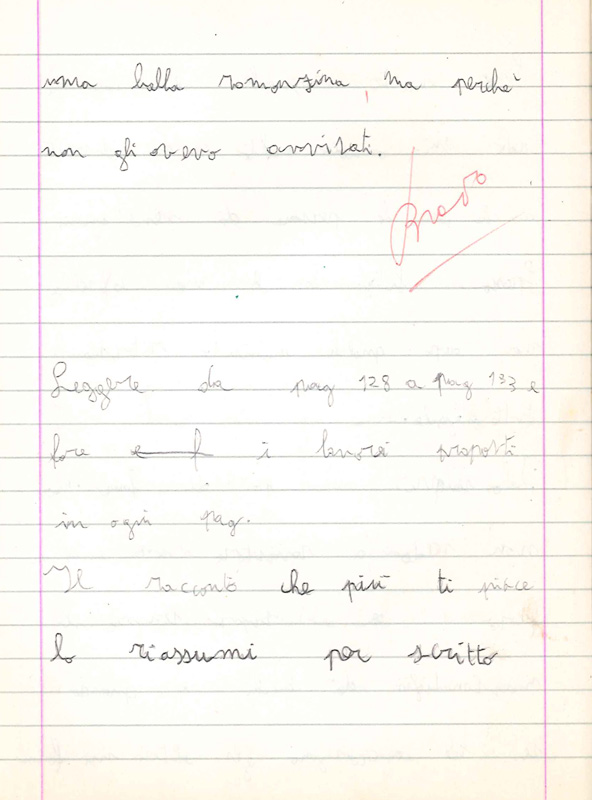 una bella romanzina, ma perchè
non gli avevo avvisati.
Bravo
Leggere da pag 128 a pag 133 e
fare e f i lavori proposti
in ogni pag.
Il racconto che più ti piace
lo riassumi per scritto